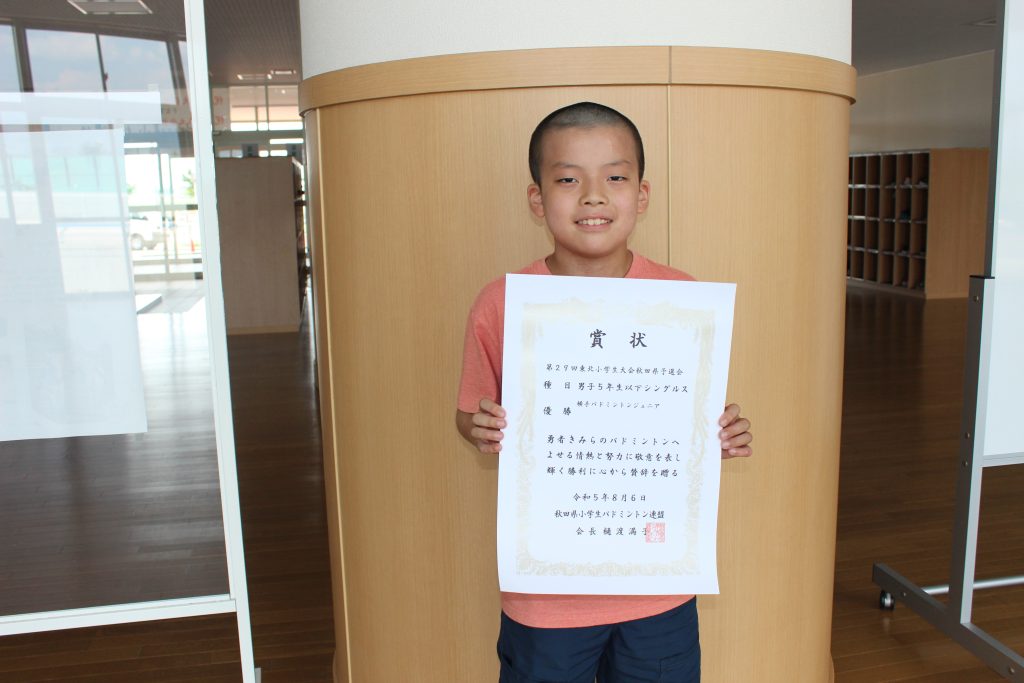 賞状
第29回東北小学生大会秋田県予選会
種目 男子5年生以下シングルス
横手バドミントンジュニア
優勝
勇者きみらのバドミントンへ
よせる情熱と努力に敬意を表し
輝く勝利に心から賛辞を贈る
令和5年8月6日
秋田県小学生バドミントン連盟
会長 樋渡満子